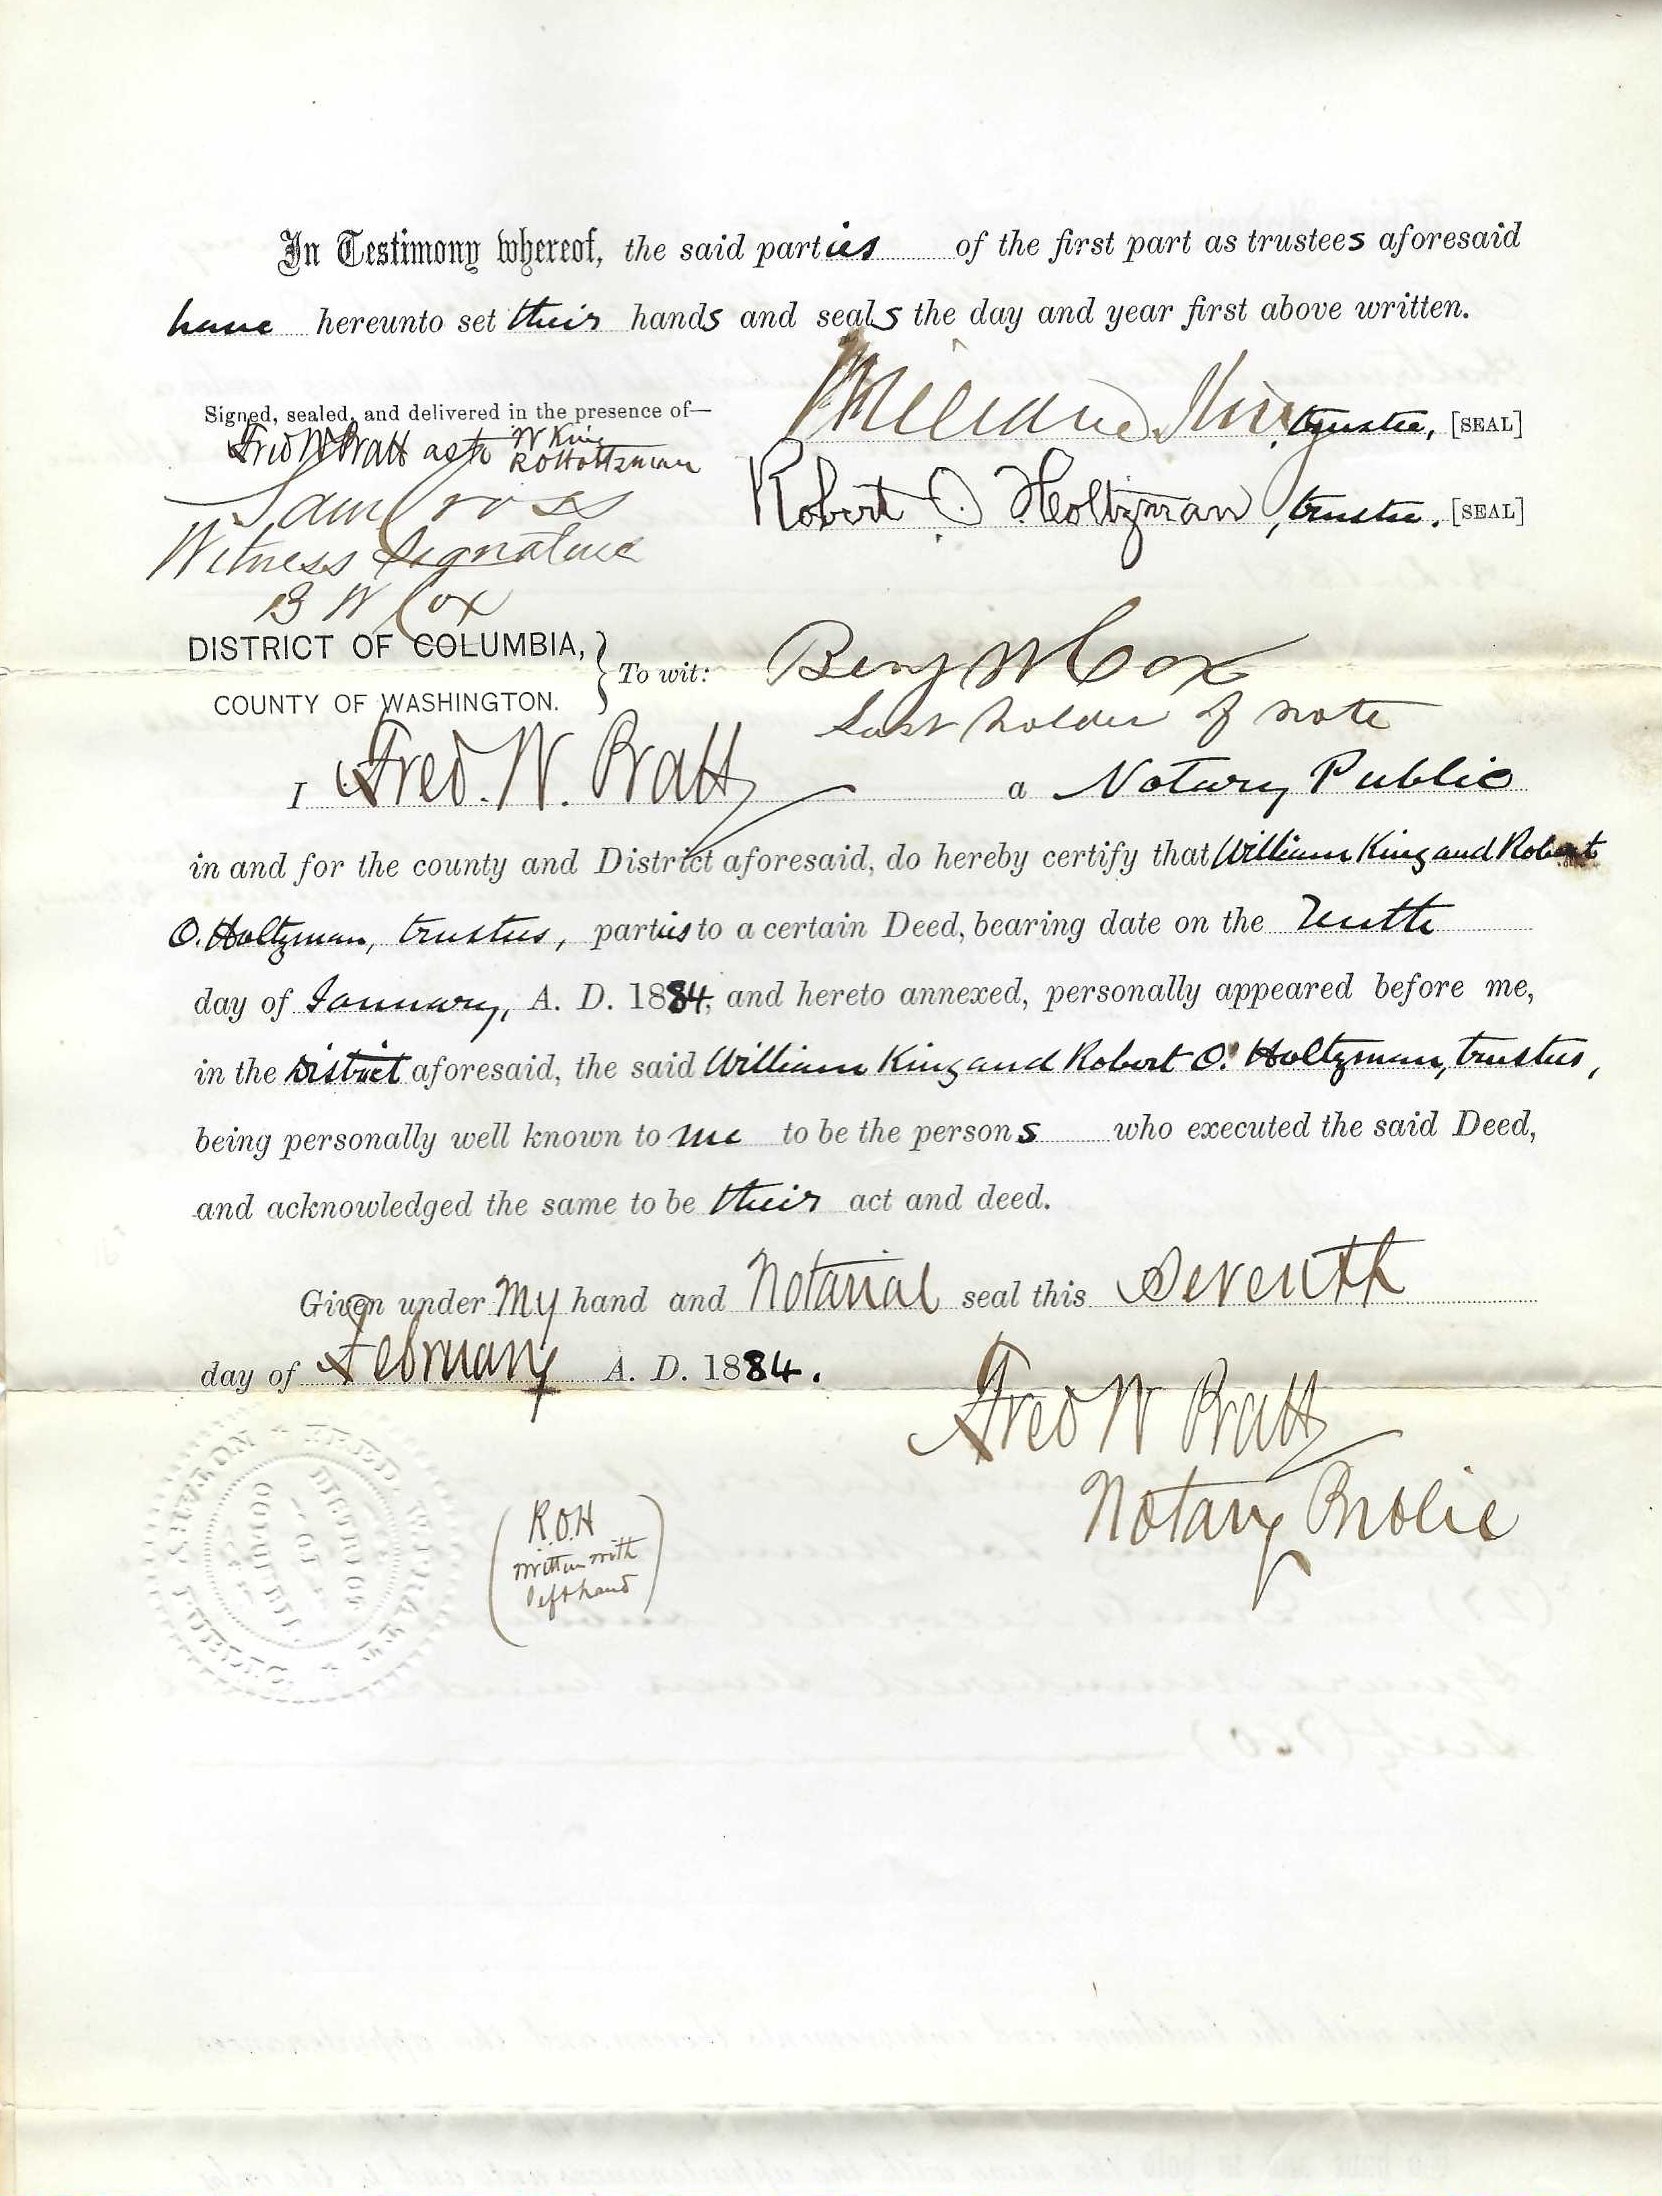 In Testimony whereof, the said parties of the first part as trustees aforesaid
have hereunto set their hands and seals the day and year first above written.
Signed, sealed, and delivered in the presence of—
Fred W Pratt as to W King
R O Holtzman
William King, trustee, [SEAL]
Robert O. Holtzman, trustee. [SEAL]
Sam Cross
Witness Signature
B W Cox
DISTRICT OF COLUMBIA,
COUNTY OF WASHINGTON.
} To wit:
Benj W Cox
Last holder of note
I Fred. W. Pratt a Notary Public
in and for the county and District aforesaid, do hereby certify that William King and Robert
O. Holtzman, trustees, parties to a certain Deed, bearing date on the Tenth
day of January, A. D. 1884, and hereto annexed, personally appeared before me,
in the District aforesaid, the said William King and Robert O. Holtzman, trustees,
being personally well known to me to be the persons who executed the said Deed,
and acknowledged the same to be their act and deed.
Given under my hand and Notarial seal this Seventh
day of February A. D. 1884.
Fred W Pratt
Notary Public
(R.O.H
written with
left hand)
FRED. W. PRATT
NOTARY PUBLIC
DISTRICT
OF
COLUMBIA